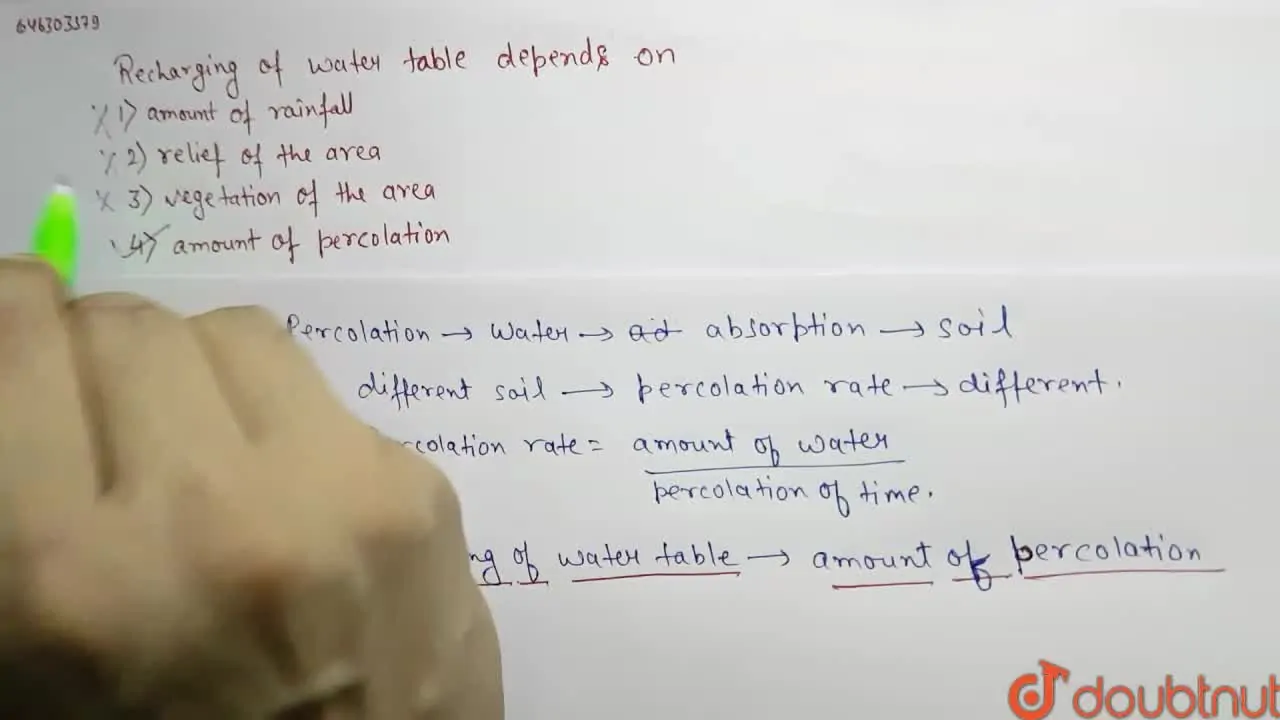 646303379
Recharging of water table depends on
1) amount of rainfall
2) relief of the area
3) vegetation of the area
4) amount of percolation
Percolation → water → absorption → soil
different soil → percolation rate → different.
rcolation rate = amount of water
percolation of time.
ng of water table → amount of percolation
doubtnut